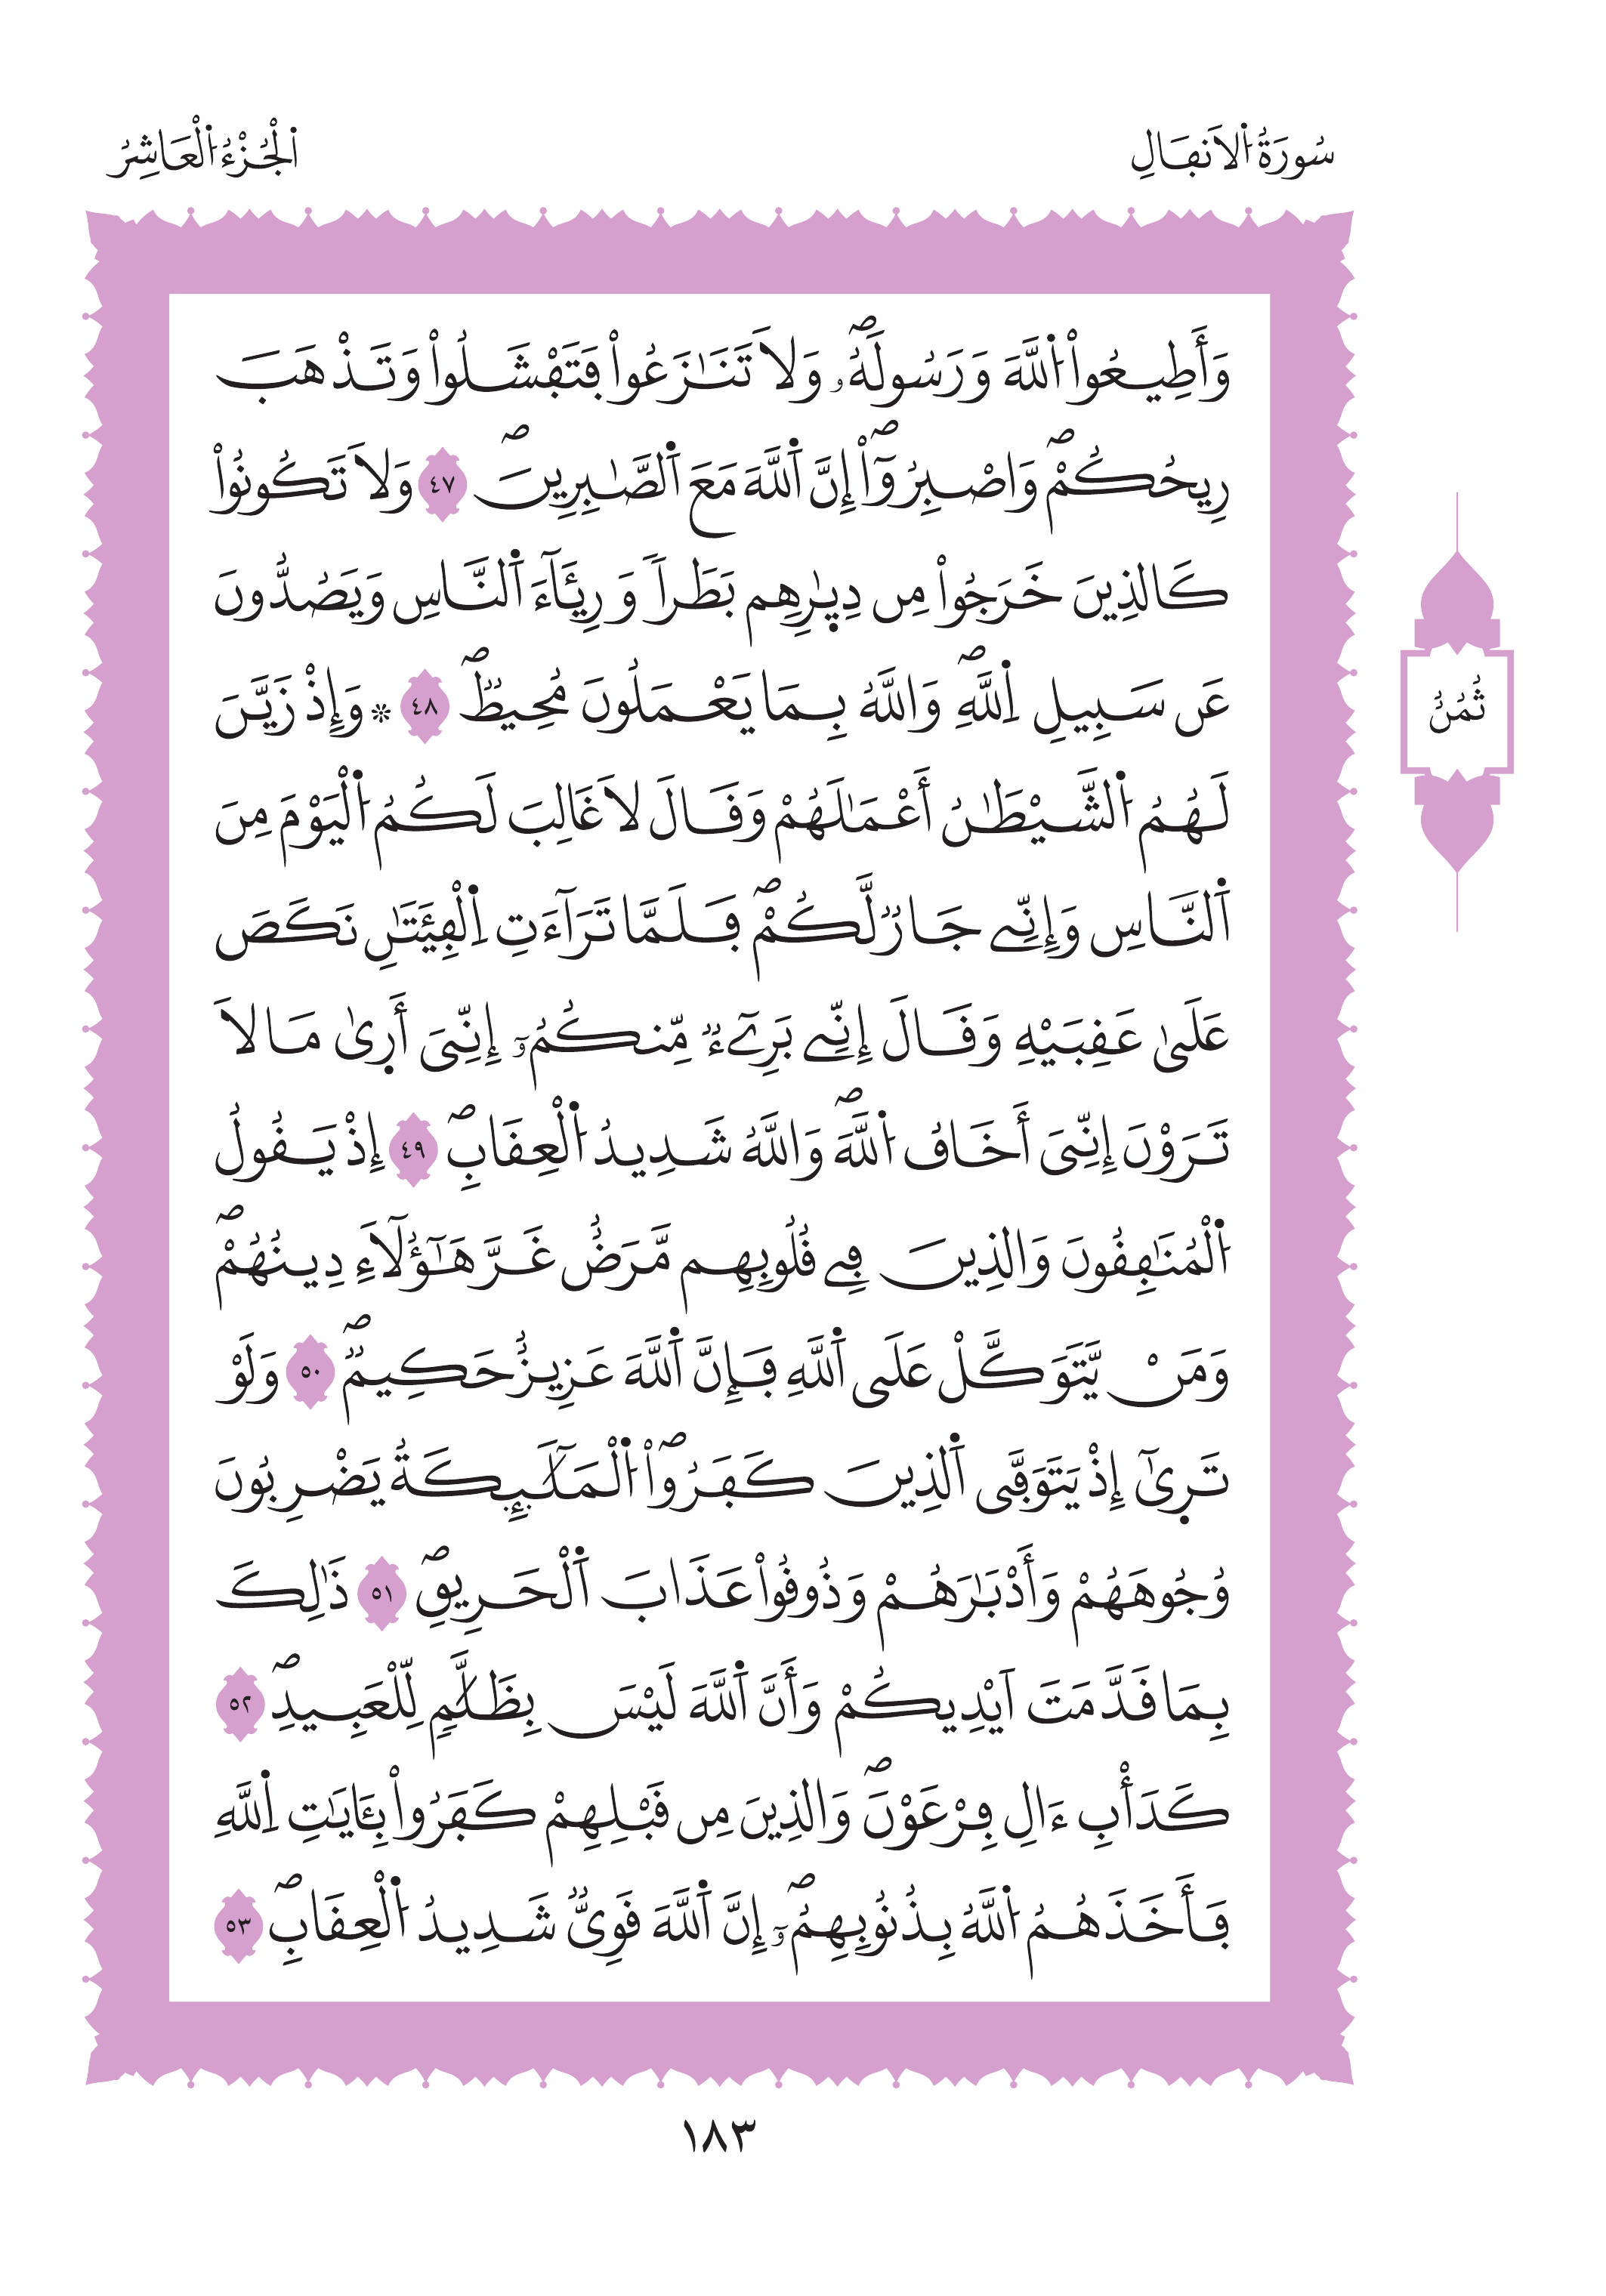 سُورَةُ اُ۬لَانفَالِ
اَ۬لْجُزْءُ اُ۬لْعَاشِرُ
وَأَطِيعُواْ اُ۬للَّهَ وَرَسُولَهُۥۖ وَلَا تَنَٰزَعُواْ فَتَفْشَلُواْ وَتَذْهَبَ
رِيحُكُمْۖ وَاصْبِرُوٓاْۖ إِنَّ اَ۬للَّهَ مَعَ اَ۬لصَّٰبِرِينَۖ ٤٧ وَلَا تَكُونُواْ
كَالذِينَ خَرَجُواْ مِن دِيٰ۪رِهِم بَطَراٗ وَرِئَآءَ اَ۬لنَّاسِ وَيَصُدُّونَ
عَن سَبِيلِ اِ۬للَّهِۖ وَاللَّهُ بِمَا يَعْمَلُونَ مُحِيطٞۖ ٤٨ * وَإِذْ زَيَّنَ
لَهُمُ اُ۬لشَّيْطَٰنُ أَعْمَٰلَهُمْ وَقَالَ لَا غَالِبَ لَكُمُ اُ۬لْيَوْمَ مِنَ
اَ۬لنَّاسِ وَإِنِّے جَارٞ لَّكُمْۖ فَلَمَّا تَرَآءَتِ اِ۬لْفِئَتَٰنِ نَكَصَ
عَلَىٰ عَقِبَيْهِ وَقَالَ إِنِّے بَرِےٓءٞ مِّنكُمُۥٓ إِنِّيَ أَر۪ىٰ مَا لَا
تَرَوْنَ إِنِّيَ أَخَافُ اُ۬للَّهَۖ وَاللَّهُ شَدِيدُ اُ۬لْعِقَابِۖ ٤٩ إِذْ يَقُولُ
اُ۬لْمُنَٰفِقُونَ وَالذِينَ فِے قُلُوبِهِم مَّرَضٌ غَرَّ هَٰٓؤُلَآءِ دِينُهُمْۖ
وَمَنْ يَّتَوَكَّلْ عَلَى اَ۬للَّهِ فَإِنَّ اَ۬للَّهَ عَزِيزٌ حَكِيمٞۖ ٥٠ وَلَوْ
تَر۪ىٰٓ إِذْ يَتَوَفَّى اَ۬لذِينَ كَفَرُواْۖ اُ۬لْمَلَٰٓئِكَةُ يَضْرِبُونَ
وُجُوهَهُمْ وَأَدْبَٰرَهُمْ وَذُوقُواْ عَذَابَ اَ۬لْحَرِيقِۖ ٥١ ذَٰلِكَ
بِمَا قَدَّمَتَ اَيْدِيكُمْ وَأَنَّ اَ۬للَّهَ لَيْسَ بِظَلَّٰمٖ لِّلْعَبِيدِۖ ٥٢
كَدَأْبِ ءَالِ فِرْعَوْنَۖ وَالذِينَ مِن قَبْلِهِمْ كَفَرُواْ بِـَٔايَٰتِ اِ۬للَّهِ
فَأَخَذَهُمُ اُ۬للَّهُ بِذُنُوبِهِمُۥٓۖ إِنَّ اَ۬للَّهَ قَوِيّٞ شَدِيدُ اُ۬لْعِقَابِۖ ٥٣
ثُمُنُ
١٨٣